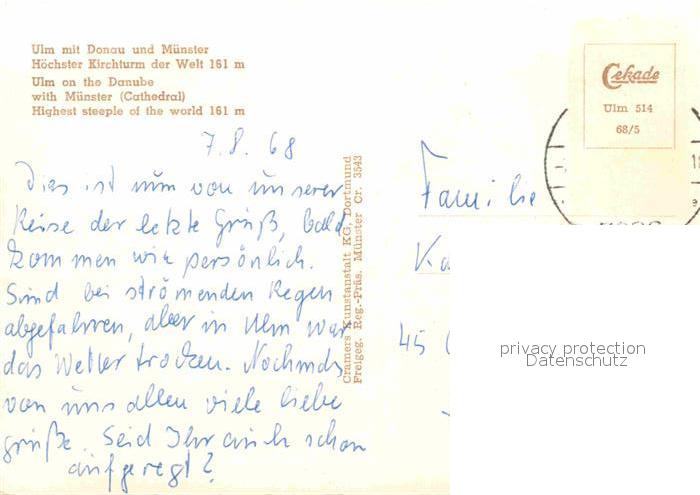 Ulm mit Donau und Münster
Höchster Kirchturm der Welt 161 m
Ulm on the Danube
with Münster (Cathedral)
Highest steeple of the world 161 m
Cekade
Ulm 514
68/5
7.8.68
Dies ist nun von unserer
Reise der letzte Gruß, bald
kommen wir persönlich.
Sind bei strömenden Regen
abgefahren, aber in Ulm war
das Wetter trocken. Nochmals
von uns allen viele liebe
Grüße. Seid Ihr auch schon
aufgeregt?
Cramers Kunstanstalt KG, Dortmund
Freigeg. Reg.-Präs. Münster Cr. 3543
Familie
45
privacy protection
Datenschutz